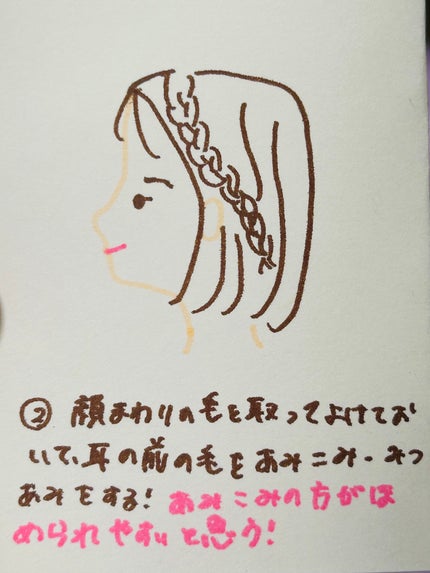 ② 顔まわりの毛を取ってよけてお
いて、耳の前の毛をあみこみ・みつ
あみをする! あみこみの方がほ
められやすいと思う!